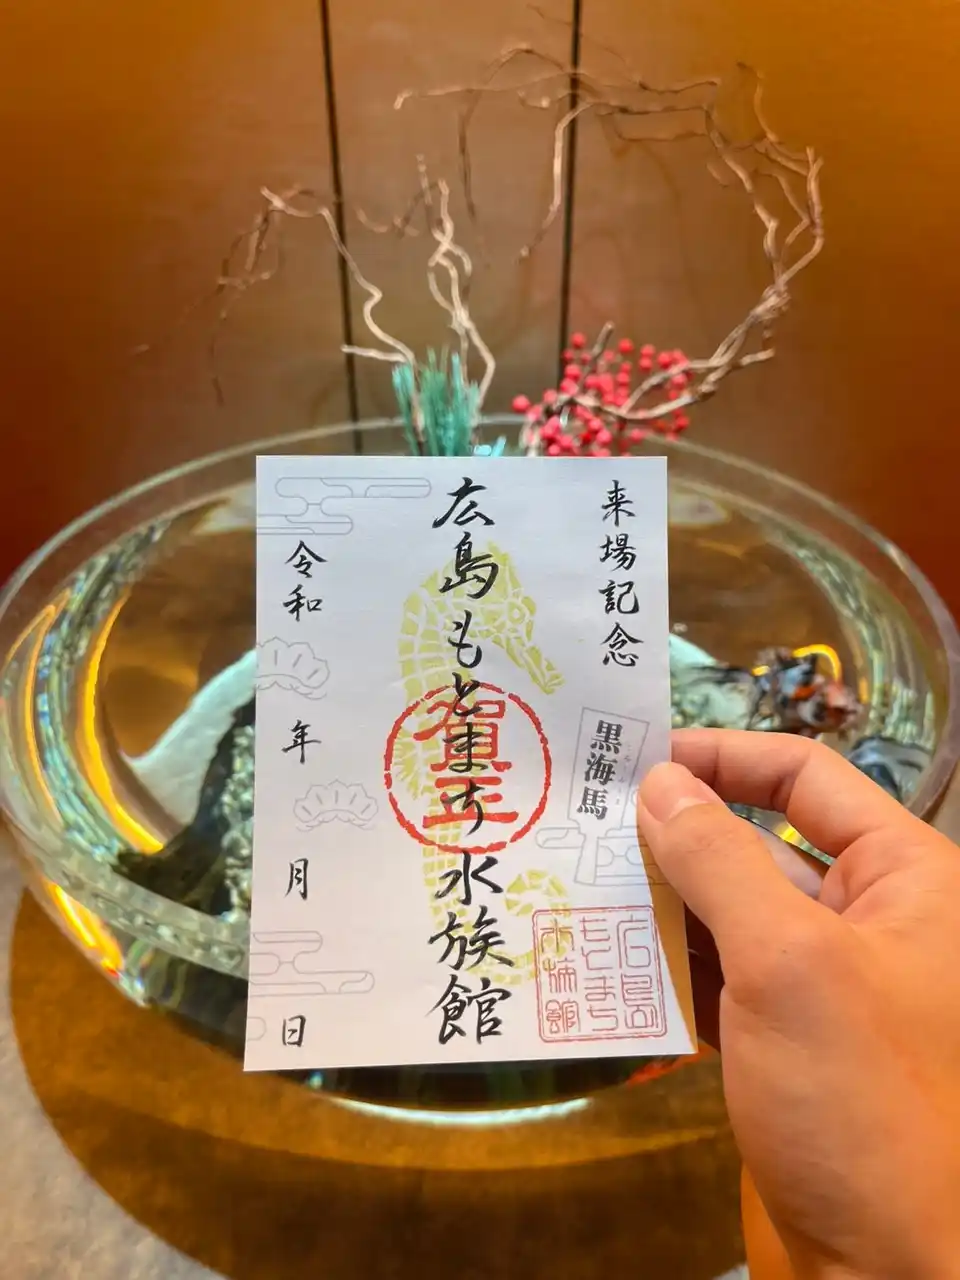 来場記念
黒海馬
広島もとまち水族館
賀正
広島
もとまち
水族館
令和 年 月 日